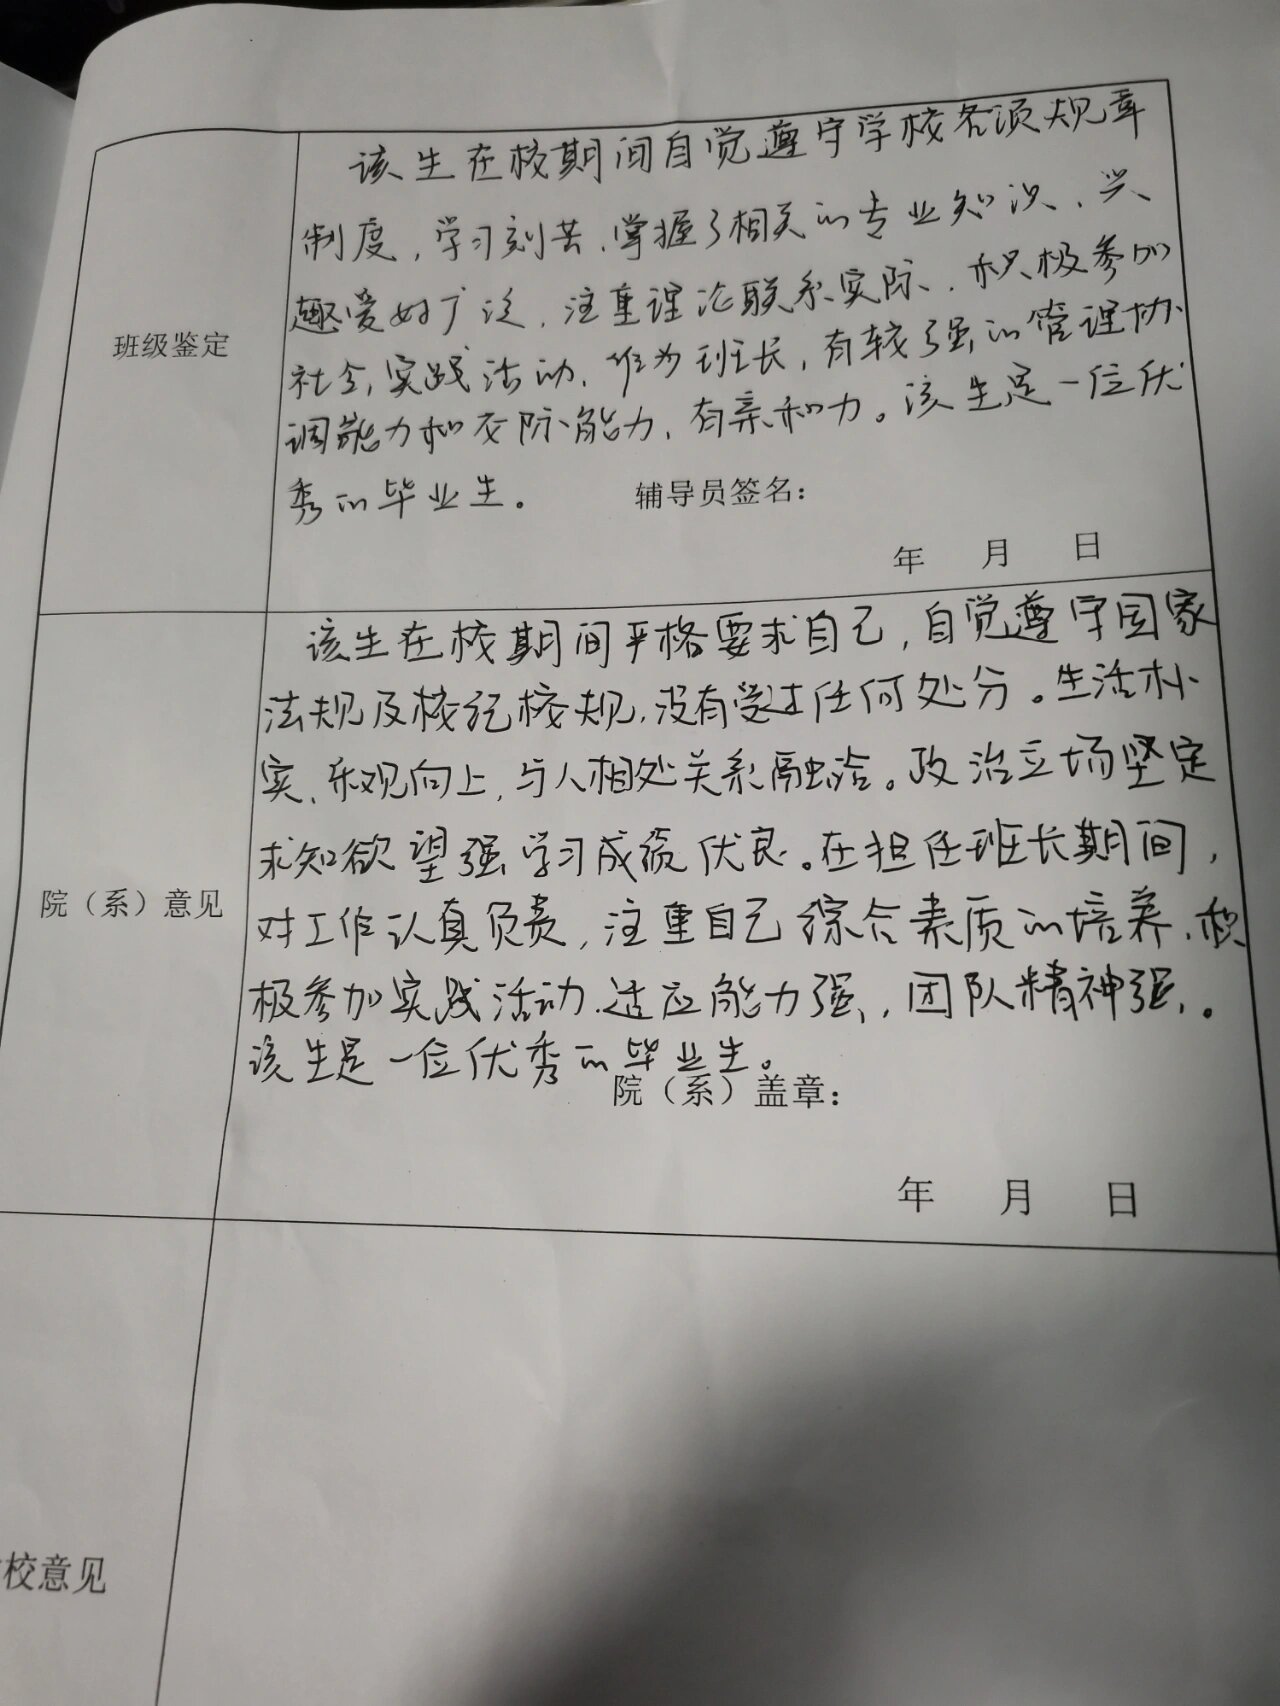 该生在校期间自觉遵守学校各项规章
制度，学习刻苦，掌握了相关的专业知识，兴
趣爱好广泛，注重理论联系实际，积极参加
社会实践活动，作为班长，有较强的管理协
调能力和交际能力，有亲和力。该生是一位优
秀的毕业生。
班级鉴定
辅导员签名：
年 月 日
该生在校期间严格要求自己，自觉遵守国家
法规及校纪校规，没有受过任何处分。生活朴
实、乐观向上，与人相处关系融洽。政治立场坚定
求知欲望强学习成绩优良。在担任班长期间，
对工作认真负责，注重自己综合素质的培养，积
极参加实践活动，适应能力强，团队精神强。
该生是一位优秀的毕业生。
院（系）意见
院（系）盖章：
年 月 日
校意见